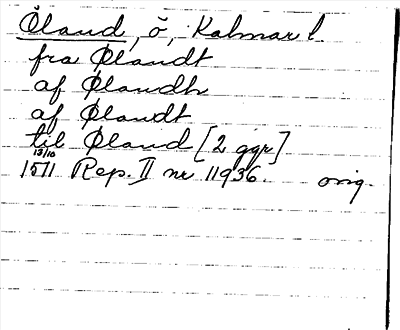 Öland, ö, Kalmar l.
fra Ølandt
af Ølandh
af Ølandt
til Øland [2 ggr]
13/10
1511 Rep. II nr 11936. orig.